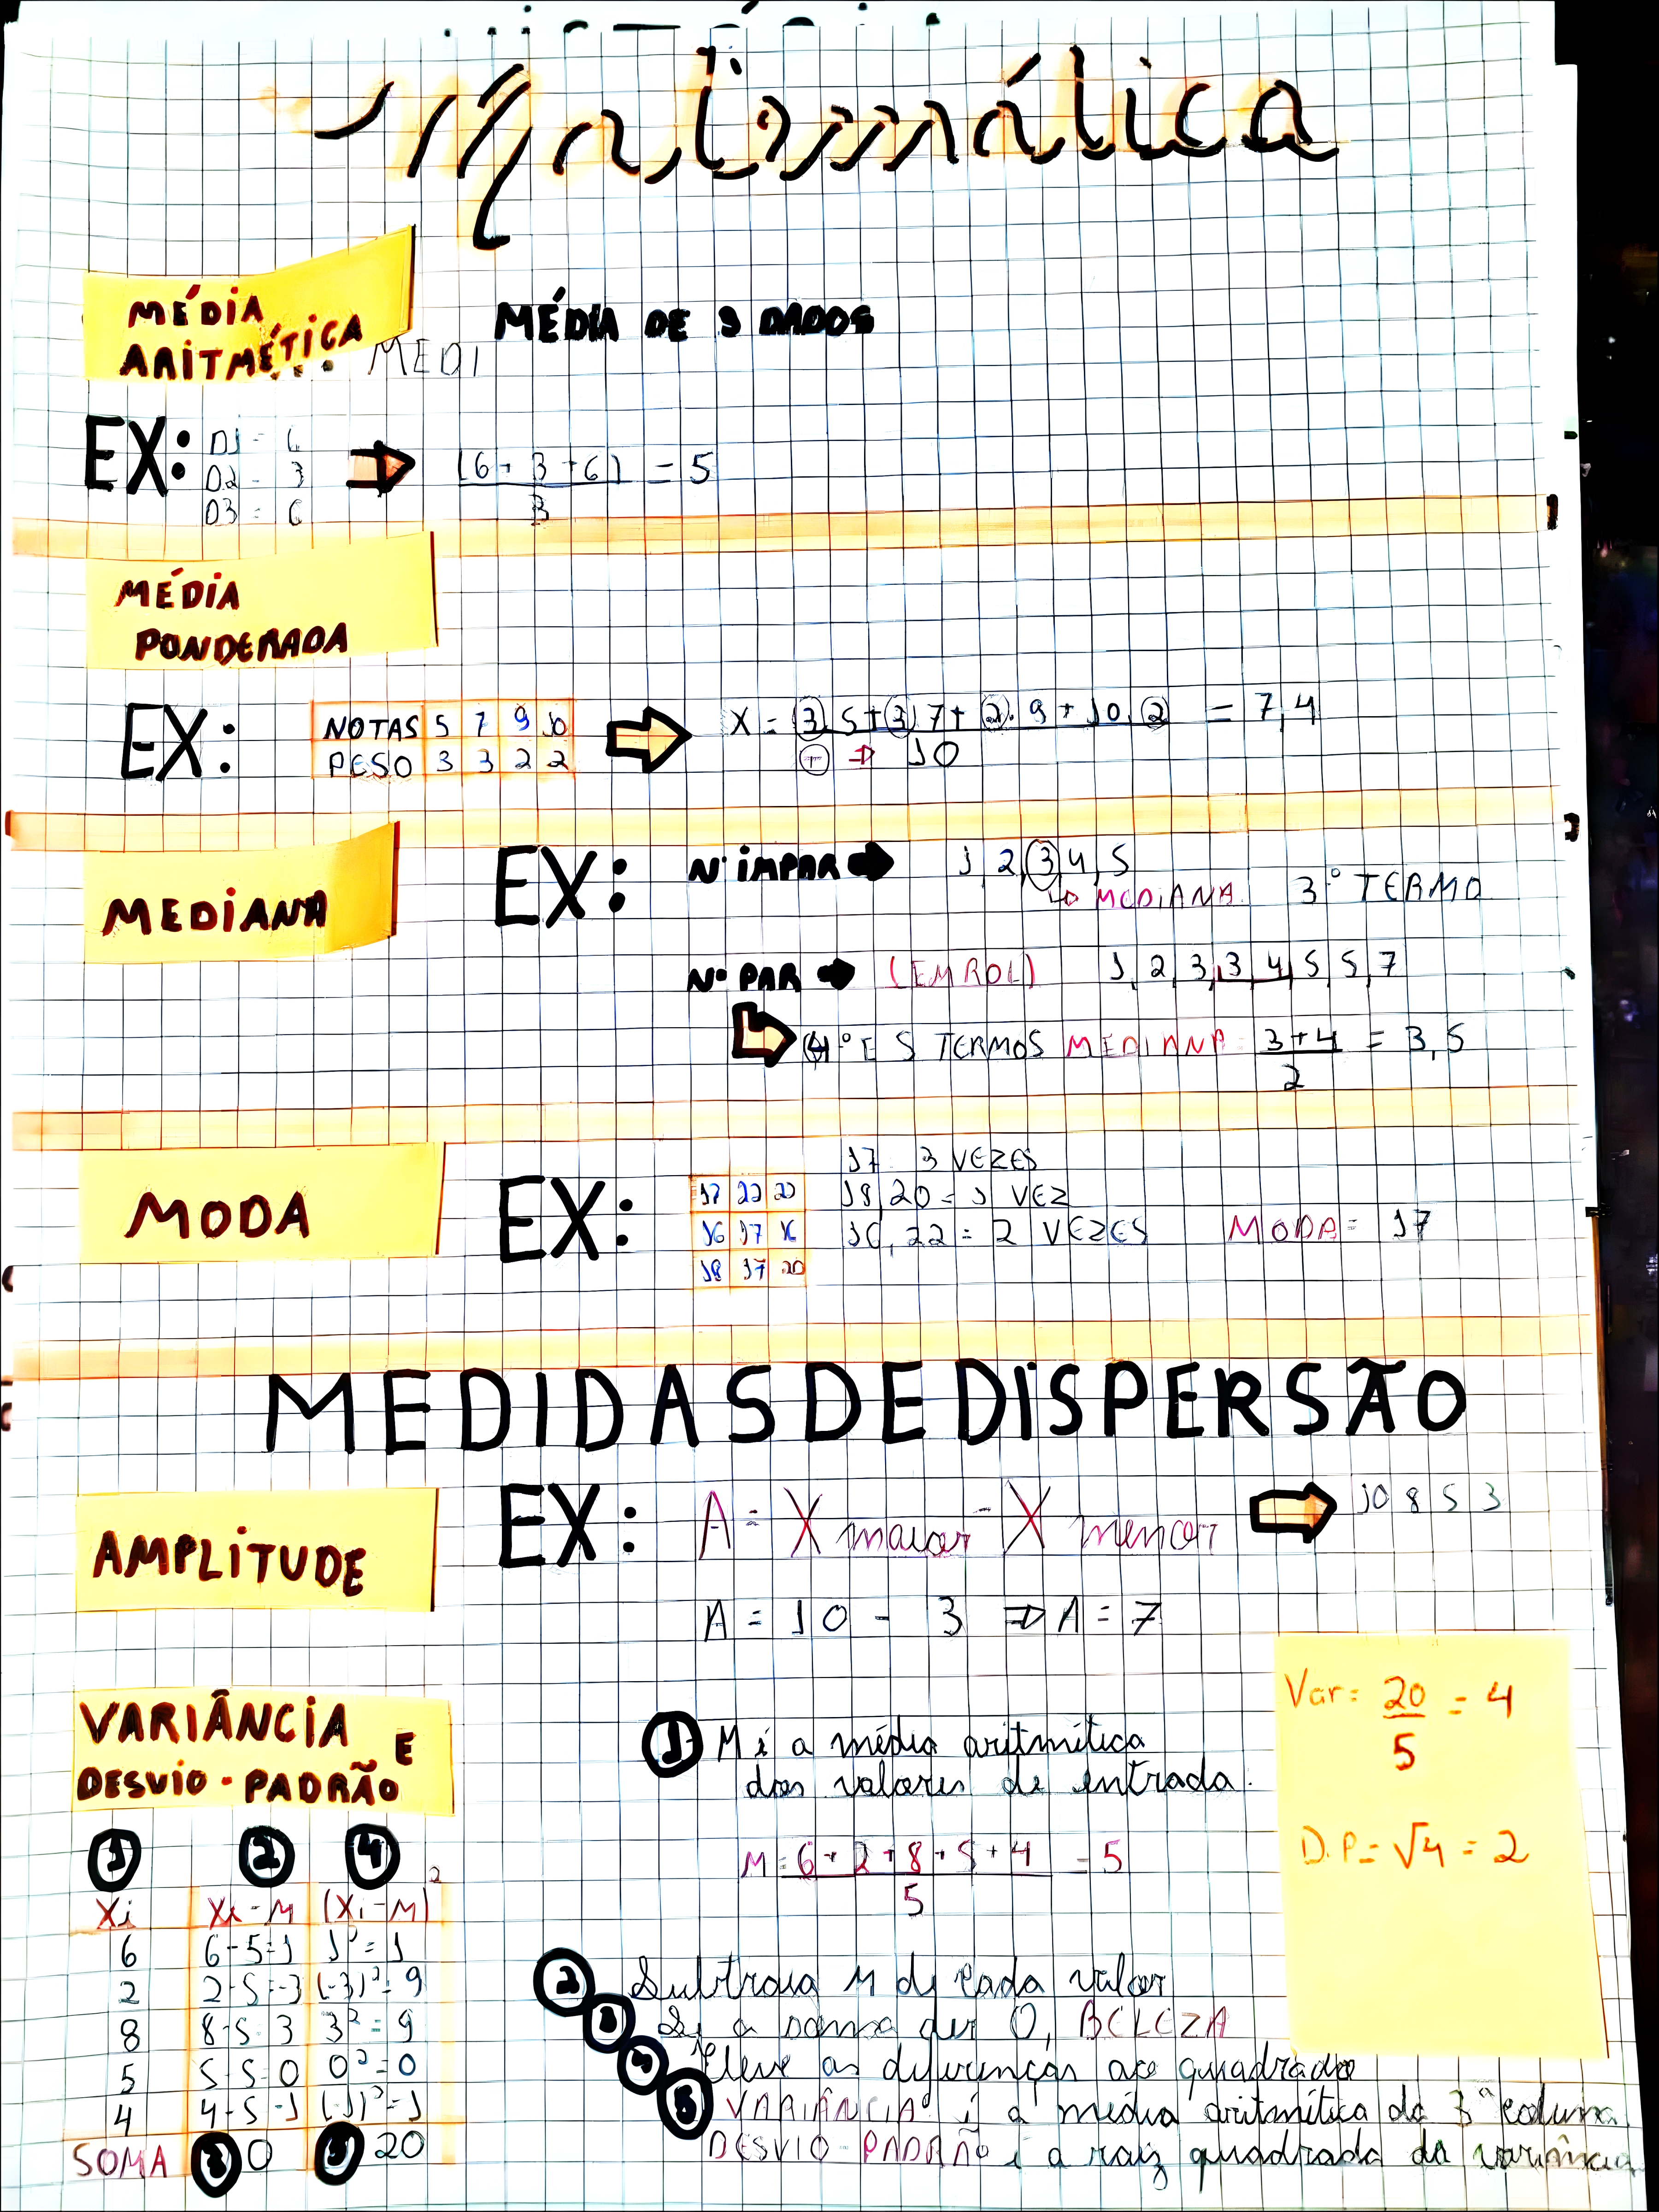 Matemática
MÉDIA
ARITMÉTICA
MEDI
MÉDIA DE 3 DADOS
EX:
D1 = 6
D2 = 3
D3 = 6
(6 + 3 + 6) = 5
3
MÉDIA
PONDERADA
EX:
NOTAS 5 7 9 10
PESO 3 3 2 2
X = 3.5+3.7+2.9+10.2 = 7,4
+ ⇒ 10
MEDIANA
EX:
Nº IMPAR → 1,2,3,4,5
↳ MEDIANA 3º TERMO
Nº PAR → (EM ROL) 1,2,3,3,4,5,5,7
4º E 5 TERMOS MEDIANA = 3+4 = 3,5
2
MODA
EX:
17 22 20
16 17 16
18 17 20
17 3 VEZES
18,20 = 1 VEZ
16,22 = 2 VEZES MODA = 17
MEDIDAS DE DISPERSÃO
AMPLITUDE
EX: A = X maior - X menor
10 8 5 3
A = 10 - 3 ⇒ A = 7
VARIÂNCIA E
DESVIO-PADRÃO
1 M é a média aritmética
dos valores de entrada.
M = 6+2+8+5+4 = 5
5
Var = 20 = 4
5
D.P = √4 = 2
1 2 4
Xi Xi-M (Xi-M)²
6 6-5=1 1²=1
2 2-5=-3 (-3)²=9
8 8-5=3 3²=9
5 5-5=0 0²=0
4 4-5=-1 (-1)²=1
SOMA 3 0 5 20
2 Subtraia M de cada valor
3 Se a soma der 0, BELEZA
4 Eleve as diferenças ao quadrado
5 VARIÂNCIA é a média aritmética da 3ª coluna
DESVIO-PADRÃO é a raiz quadrada da variância